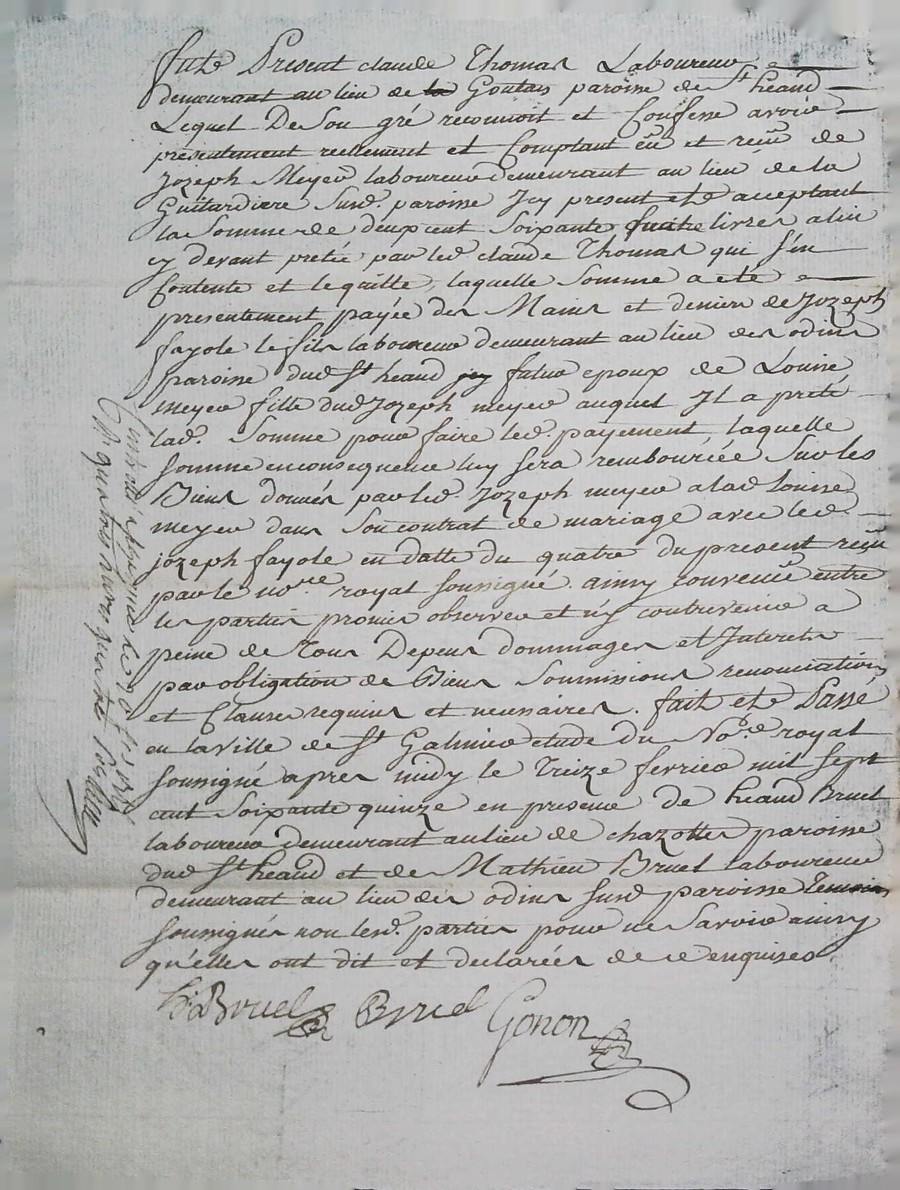 fut Present claude Thomas Laboureur
demeurant au lieu de la Goutais paroisse de St heand
Lequel De Son gré reconnoit et Confesse avoir
presentement reellement et Comptant eu et reçu de
Jozeph Meyer laboureur demeurant au lieu de la
Guitardiere Susd. paroisse Icy present et acceptant
la Somme de deux cent Soixante quatre livres a lui
cy devant pretée par led. claude Thomas qui s'en
Contente et le quitte, laquelle Somme a eté
presentement payée des Mains et deniers de Jozeph
fayole le fils laboureur demeurant au lieu des odins
paroisse dud St heand futur epoux de Louise
meyer fille dud Jozeph meyer auquel Il a preté
lad. Somme pour faire led. payement, laquelle
Somme en consequence luy sera remboursée Sur les
Biens donnés par led. Jozeph meyer a lad Louise
meyer dans Son contrat de mariage avec led.
jozeph fayole en datte du quatre du present reçu
par le nore royal soussigné. ainsy convenu entre
les parties promis observer et n'y contrevenir a
peine de Tous Depens dommages et Interets
par obligation de Biens Soumissions renonciations
et Clauses requises et necessaires. fait et Passé
en la Ville de St Galmier etude du Nore royal
soussigné apres midy le Treize ferrier mil sept
cent Soixante quinze en presence de heand Bruel
laboureur demeurant au lieu de chazottes paroisse
dud St heand et de Mathieu Bruel laboureur
demeurant au lieu des odins susd paroisse Temoins
soussignés non lesd. parties pour ne Savoir ainsy
qu'elles ont dit et declarées de ce enquises
h. Bruel Bruel Gonon